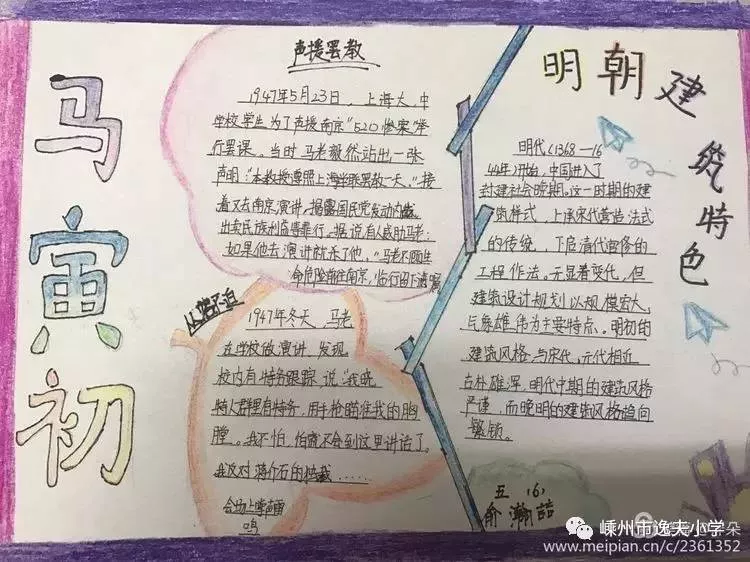 马寅初
声援罢教
1947年5月23日，上海大、中
学校学生为了声援南京"520惨案"举
行罢课。当时马老毅然站出一张
声明："本教授遵照上海学联罢教一天。"接
着又去南京演讲，揭露国民党发动内战
出卖民族利益罪行，据说有人威胁马老：
如果他去演讲就杀了他，"马老不顾生
命危险前往南京，临行留下遗嘱
从容不迫
1947年冬天，马老
在学校做演讲，发现
校内有特务跟踪，说"我晓
人群里有特务，用手枪瞄准我的胸
膛。我不怕，怕就不会到这里讲话了。
我反对蒋介石的独裁……
会场上掌声雷
鸣
明朝建筑特色
明代（1368—16
44年）开始，中国进入了
封建社会晚期。这一时期的建
筑样式，上承宋代营造法式
的传统，下启清代官修的
工程作法。无显着变化，但
建筑设计规划以规模宏大、
气象雄伟为主要特点。明初的
建筑风格，与宋代、元代相近
古朴雄浑，明代中期的建筑风格
严谨，而晚明的建筑风格趋向
繁琐。
五（6）
俞瀚喆
嵊州市逸夫小学
www.meipian.cn/c/2361352